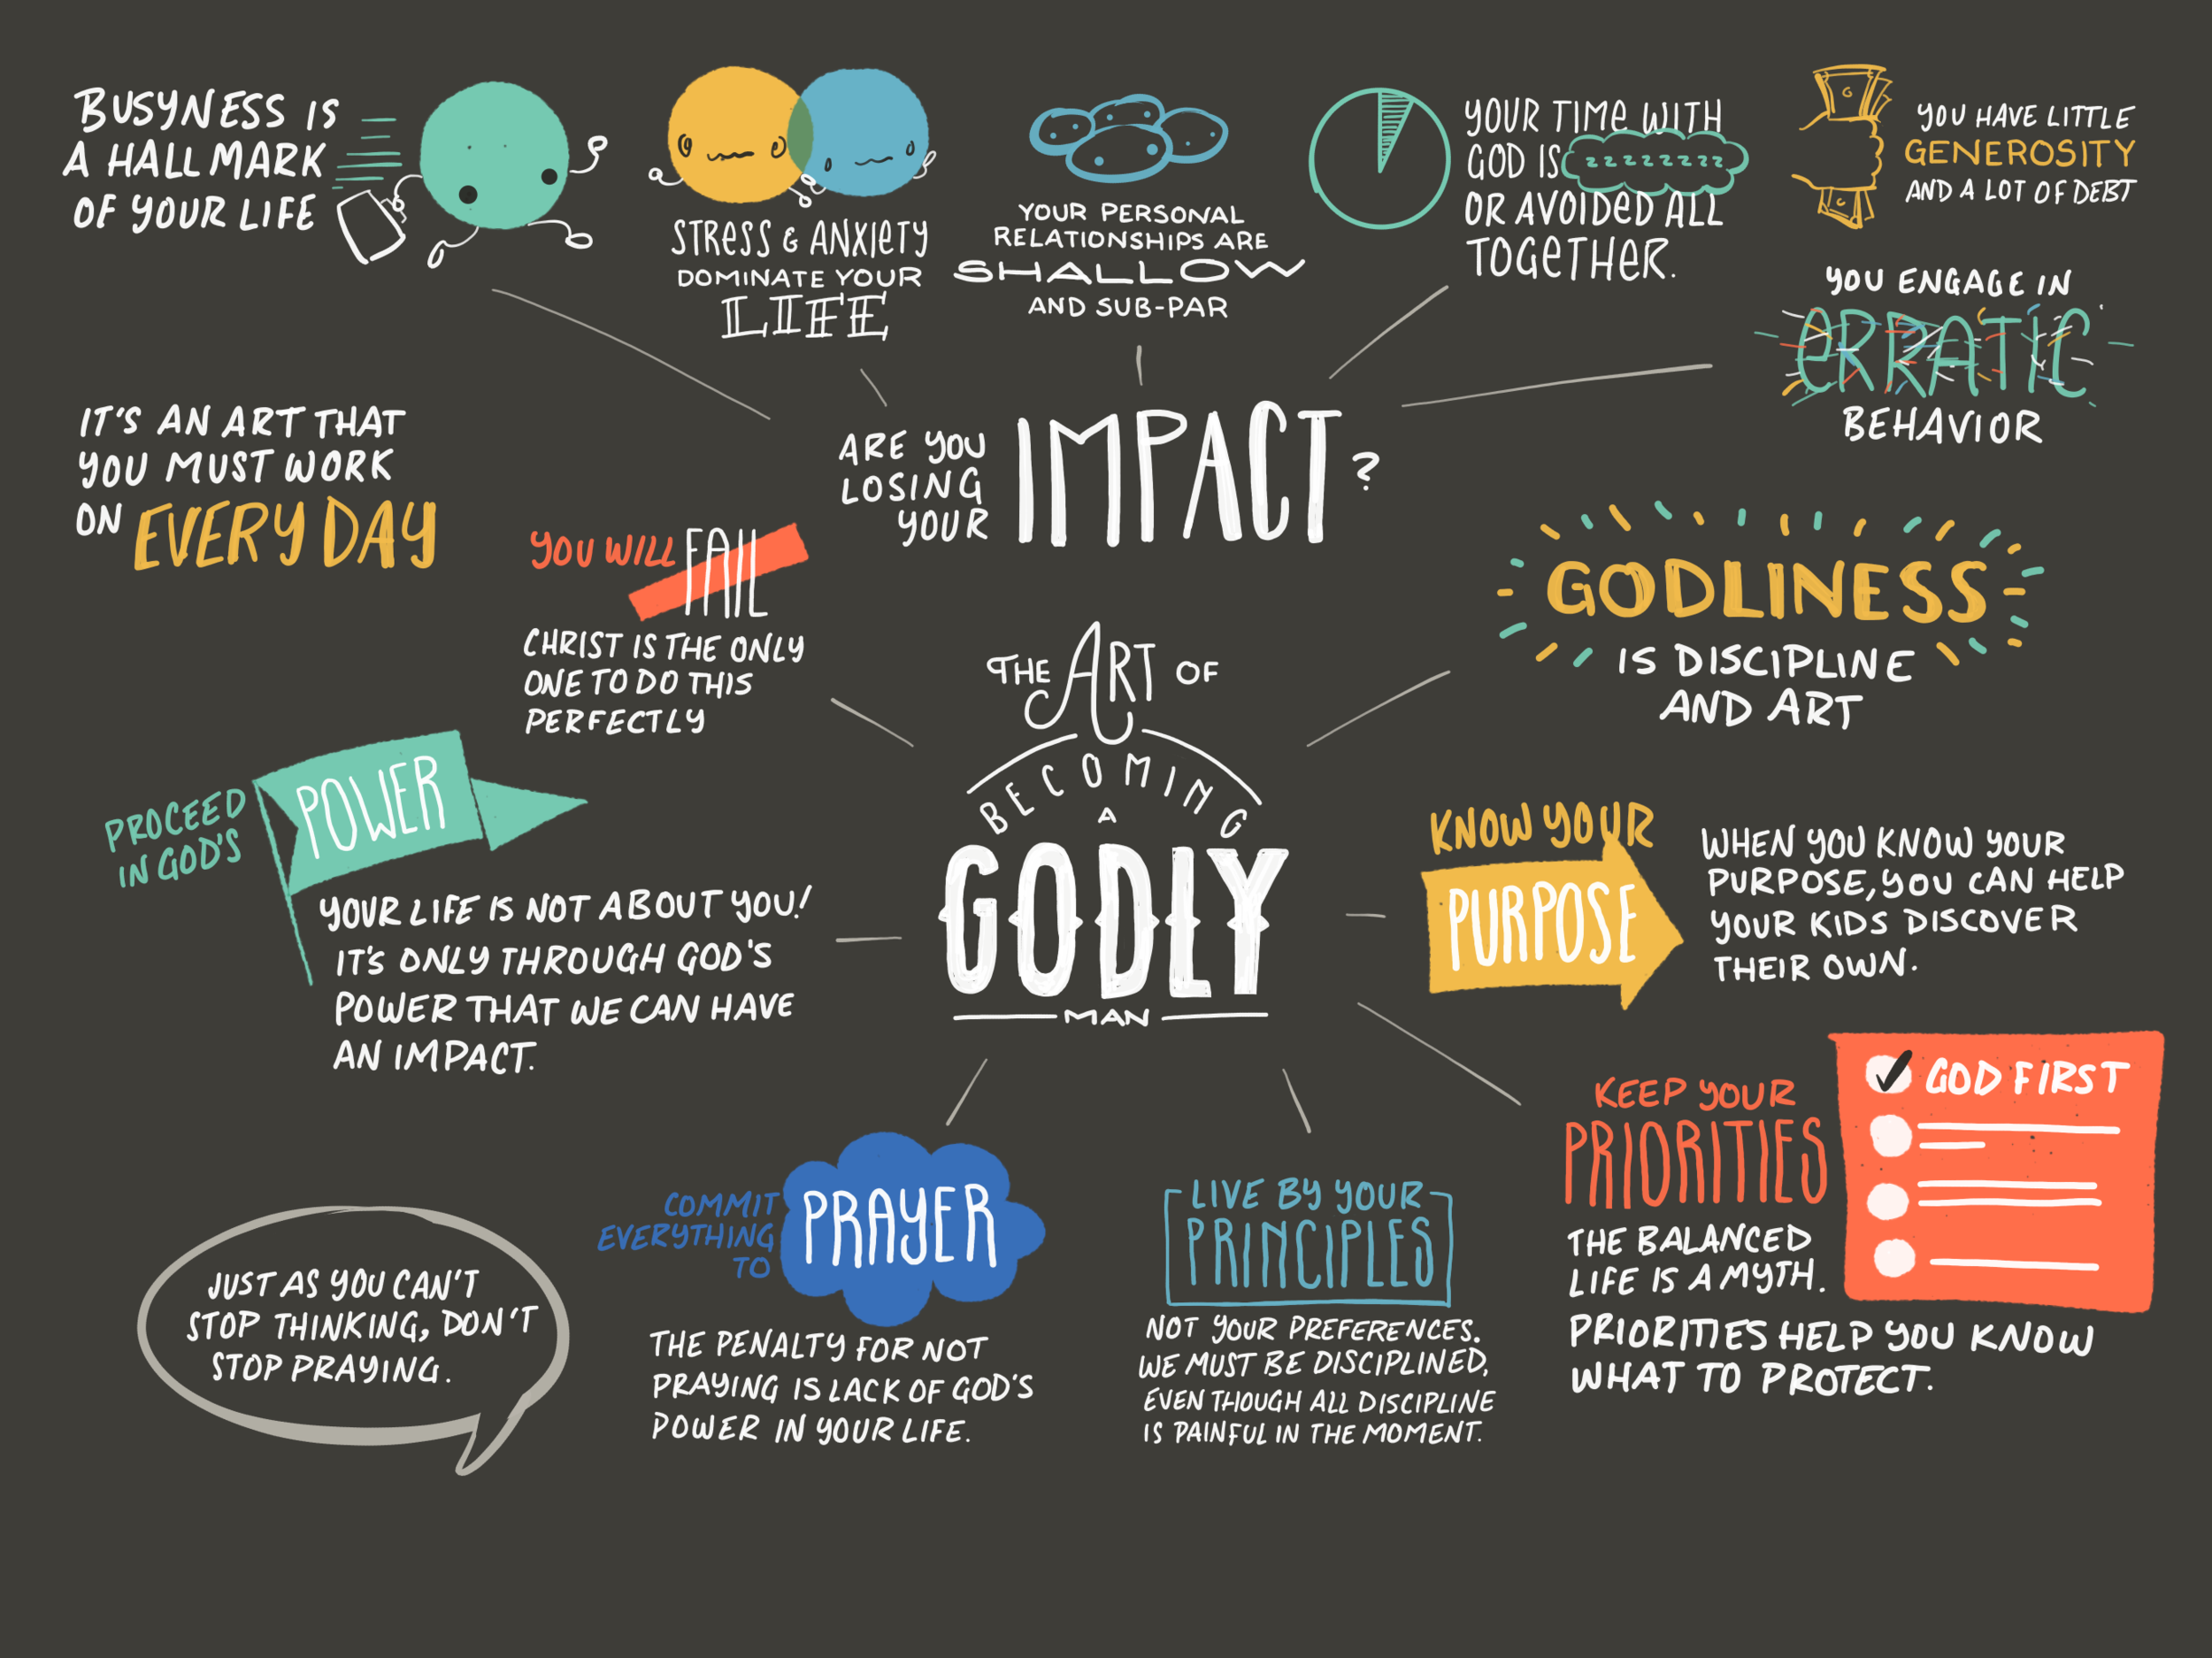 BUSYNESS IS
A HALLMARK
OF YOUR LIFE
STRESS & ANXIETY
DOMINATE YOUR
LIFE
YOUR PERSONAL
RELATIONSHIPS ARE
SHALLOW
AND SUB-PAR
YOUR TIME WITH
GOD IS zzzzzzzz
OR AVOIDED ALL
TOGETHER.
G
G
YOU HAVE LITTLE
GENEROSITY
AND A LOT OF DEBT
YOU ENGAGE IN
ERRATIC
BEHAVIOR
ARE YOU
LOSING
YOUR
IMPACT?
IT'S AN ART THAT
YOU MUST WORK
ON EVERY DAY
YOU WILL FAIL
CHRIST IS THE ONLY
ONE TO DO THIS
PERFECTLY
THE ART OF
BECOMING
A
GODLY
MAN
GODLINESS
IS DISCIPLINE
AND ART
PROCEED
IN GOD'S
POWER
YOUR LIFE IS NOT ABOUT YOU!
IT'S ONLY THROUGH GOD'S
POWER THAT WE CAN HAVE
AN IMPACT.
KNOW YOUR
PURPOSE
WHEN YOU KNOW YOUR
PURPOSE, YOU CAN HELP
YOUR KIDS DISCOVER
THEIR OWN.
KEEP YOUR
PRIORITIES
GOD FIRST
THE BALANCED
LIFE IS A MYTH.
PRIORITIES HELP YOU KNOW
WHAT TO PROTECT.
LIVE BY YOUR
PRINCIPLES
NOT YOUR PREFERENCES.
WE MUST BE DISCIPLINED,
EVEN THOUGH ALL DISCIPLINE
IS PAINFUL IN THE MOMENT.
COMMIT
EVERYTHING
TO
PRAYER
THE PENALTY FOR NOT
PRAYING IS LACK OF GOD'S
POWER IN YOUR LIFE.
JUST AS YOU CAN'T
STOP THINKING, DON'T
STOP PRAYING.